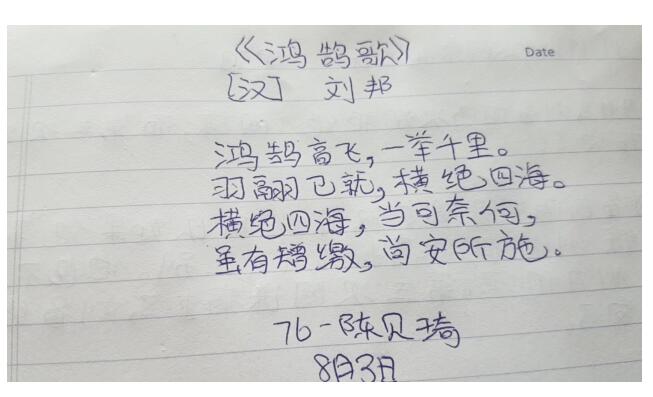 《鸿鹄歌》
Date
[汉] 刘邦
鸿鹄高飞,一举千里。
羽翮已就,横绝四海。
横绝四海,当可奈何,
虽有矰缴,尚安所施。
76-陈贝琦
8月3日